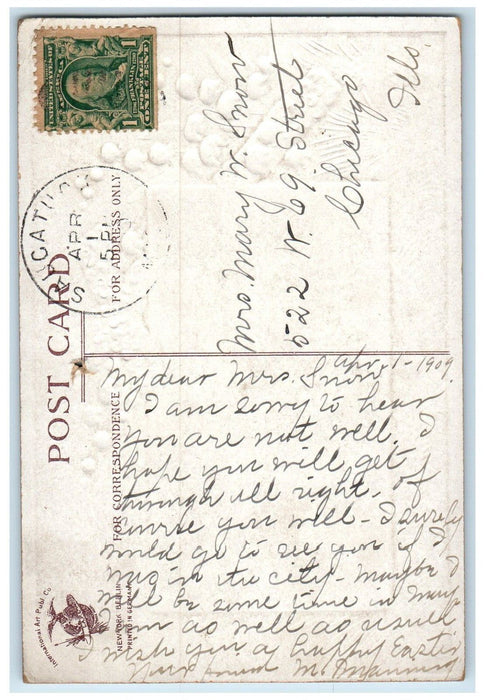 UNITED STATES OF AMERICA
FRANKLIN
POSTAGE
1 ONE CENT 1
APR
1
5 P
POST CARD
FOR ADDRESS ONLY
FOR CORRESPONDENCE
Mrs. Mary W. Snow
522 W. 69 Street
Chicago
Ills.
Apr. 1 - 1909.
My dear Mrs. Snow
I am sorry to hear
you are not well. I
hope you will get
through all right. of
course you will - I surely
would go to see you if I
was in the city - Maybe I
will be some time in May
am as well as usual
I wish you a happy Easter
Your friend M. Manning
International Art Publ. Co.
NEW YORK BERLIN
PRINTED IN GERMANY